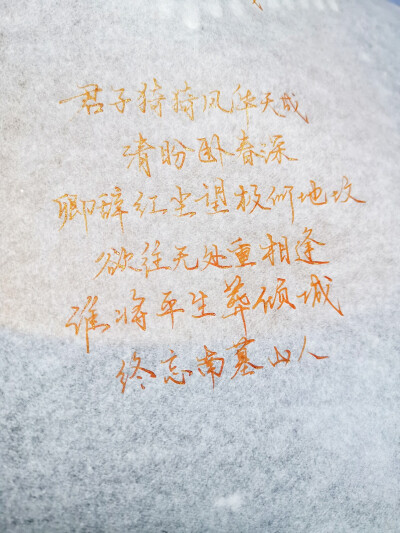 君子猗猗风华天成
清盼卧春深
卿辞红尘望极何地坟
欲往无处重相逢
谁将平生葬倾城
终忘南墓山人